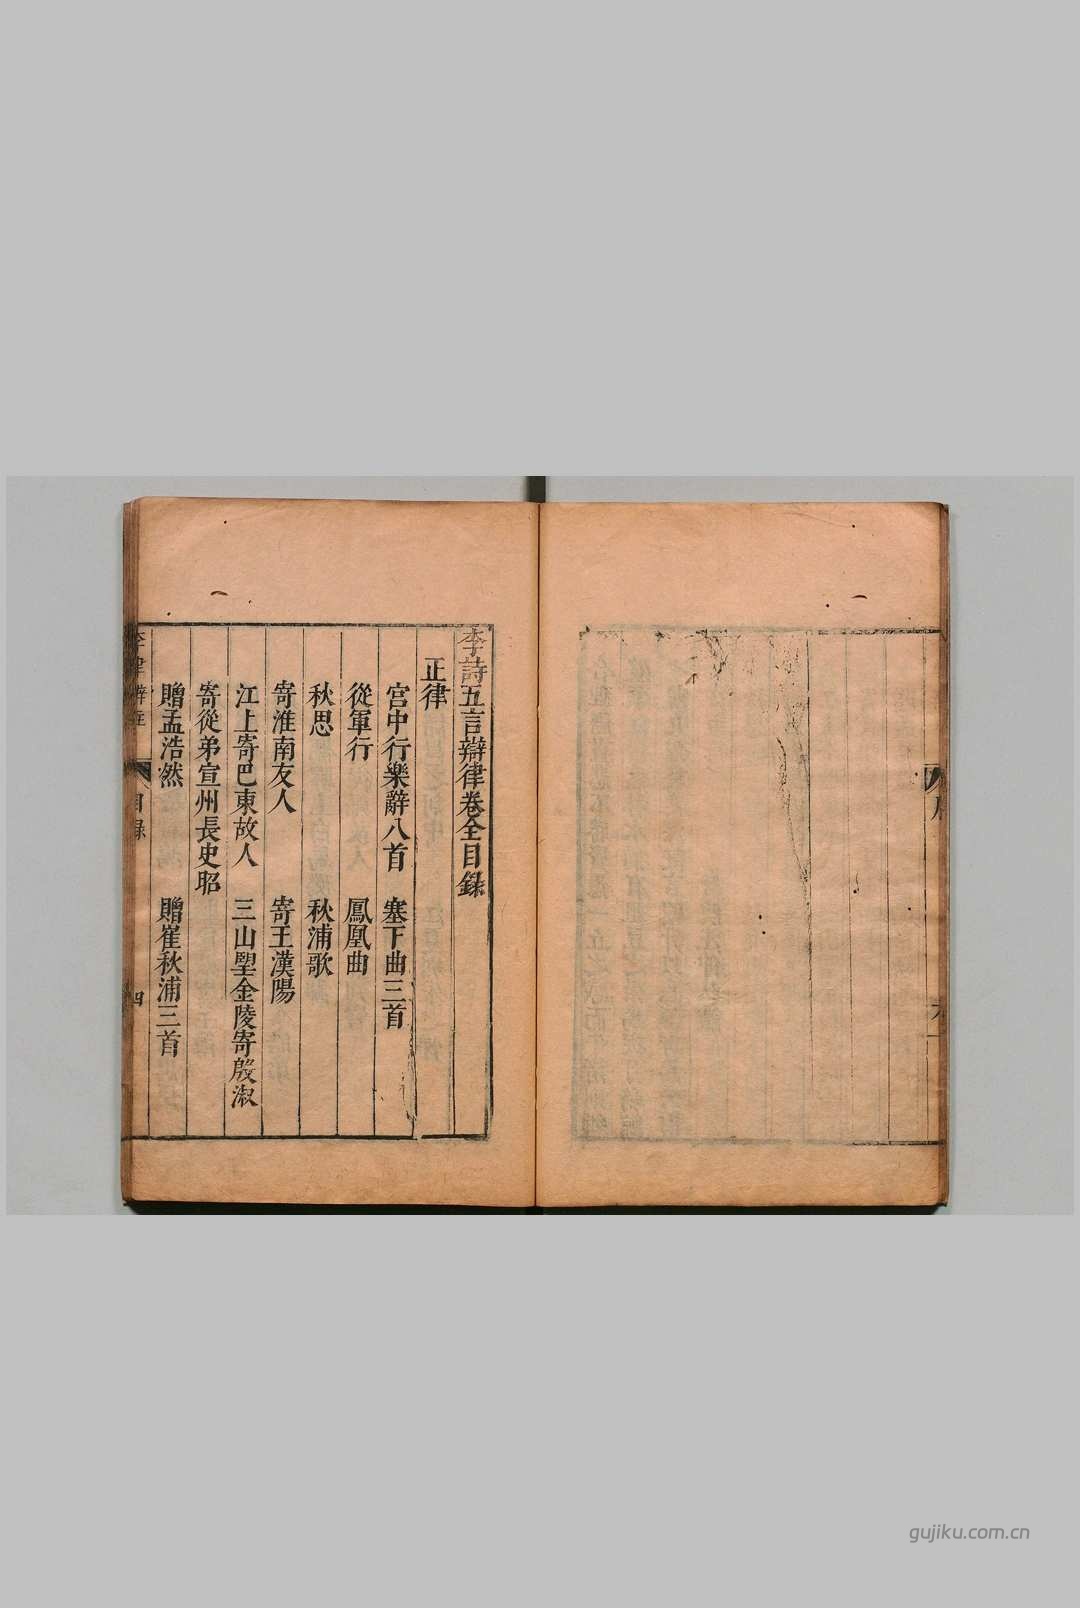 李詩五言辯律卷全目録
正律
宮中行樂辭八首　塞下曲三首
從軍行　鳳凰曲
秋思　秋浦歌
寄淮南友人　寄王漢陽
江上寄巴東故人　三山望金陵寄殷淑
寄從弟宣州長史昭
贈孟浩然　贈崔秋浦三首
目録
四
gujiku.com.cn